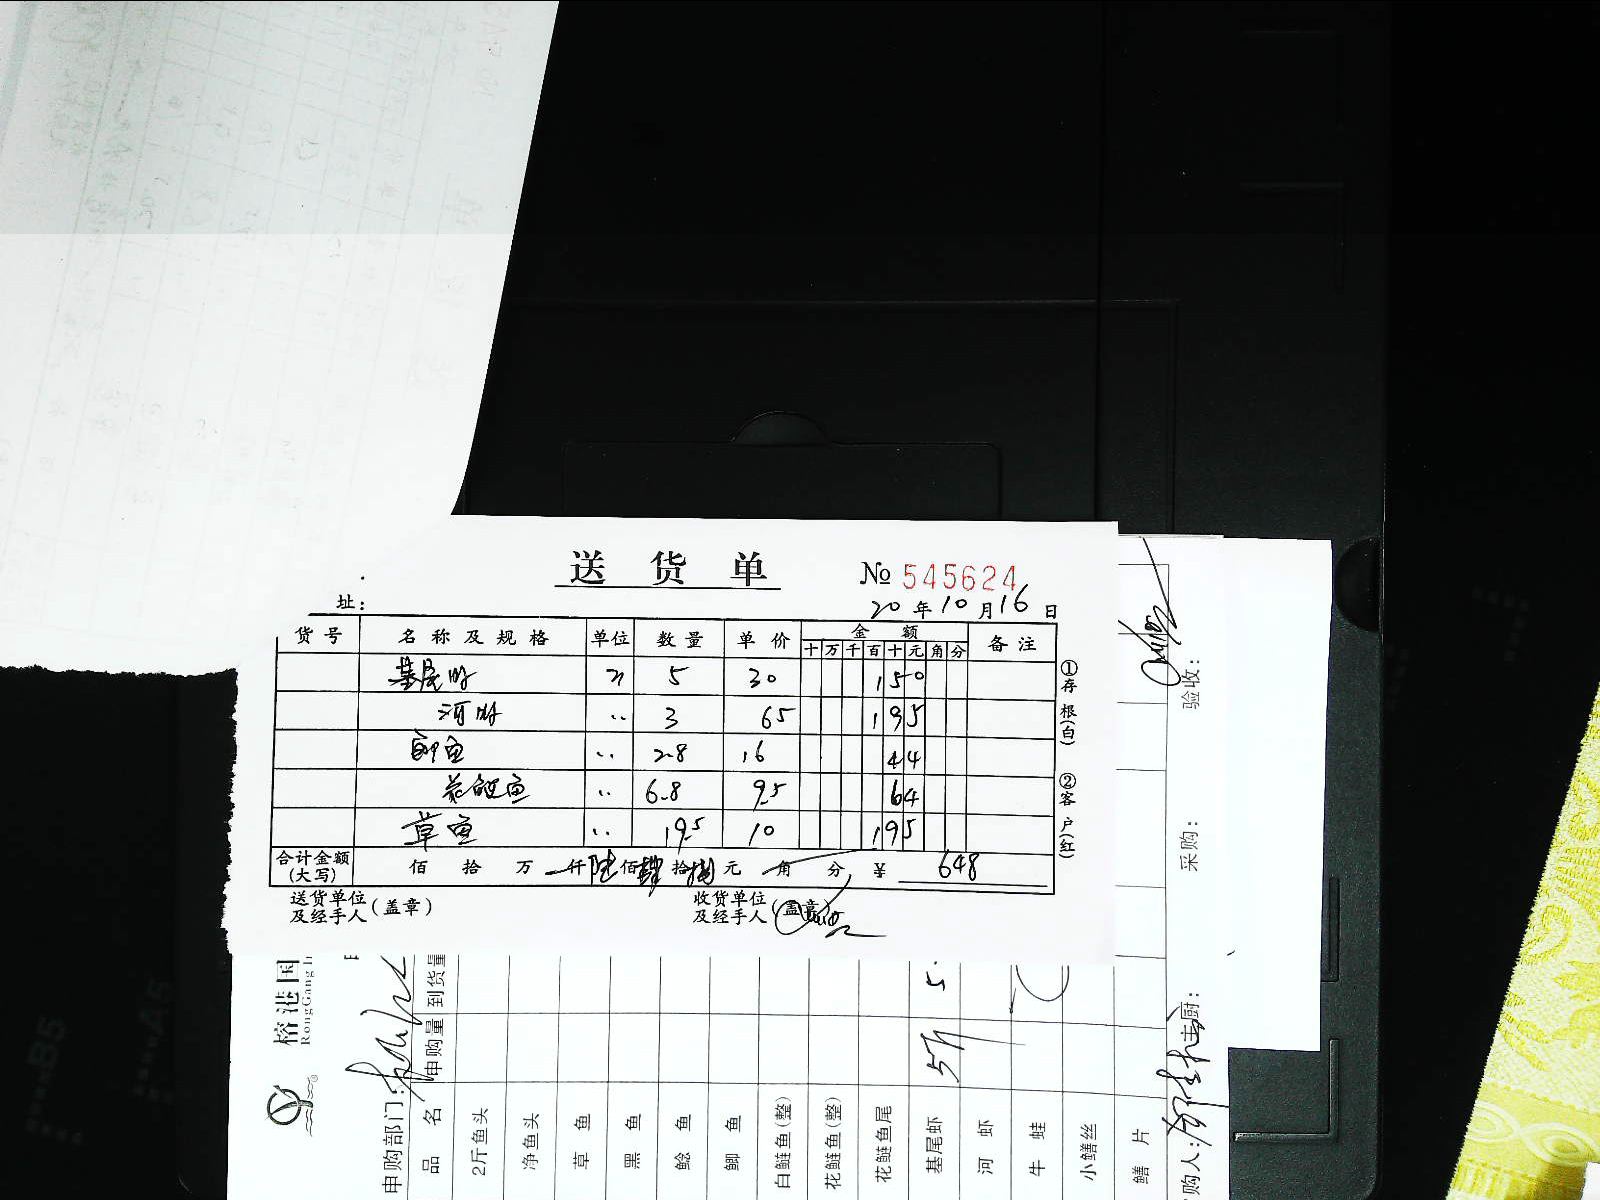 送货单 № 545624
址： 20年10月16日
货号 名称及规格 单位 数量 单价 金额 备注
十 万 千 百 十 元 角 分
基尾虾 斤 5 30 150
河虾 〃 3 65 195
鲫鱼 〃 2.8 16 44
花鲢鱼 〃 6.8 9.5 64
草鱼 〃 19.5 10 195
合计金额（大写） 佰 拾 万 仟 陆佰 肆拾 捌元 角 分 ¥ 648
送货单位及经手人（盖章） 收货单位及经手人（盖章）
①存根（白） ②客户（红）
榕港国
RongGang I
申购部门：
品名 申购量 到货量
2斤鱼头
净鱼头
草鱼
黑鱼
鲶鱼
鲫鱼
白鲢鱼（整）
花鲢鱼（整）
花鲢鱼尾
基尾虾 5斤 5
河虾
牛蛙
小鳝丝
鳝片
购人： 厨： 采购： 验收：
B5
A5